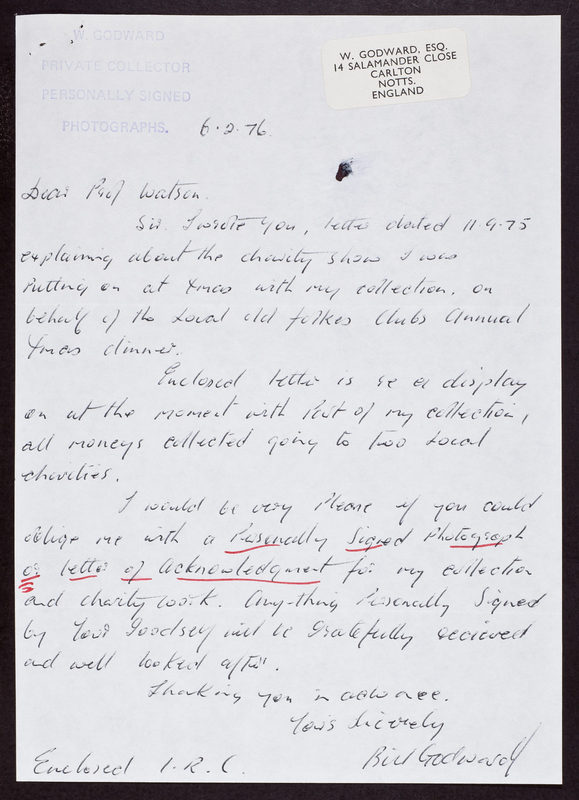 W. GODWARD
PRIVATE COLLECTOR
PERSONALLY SIGNED
PHOTOGRAPHS.
W. GODWARD, ESQ.
14 SALAMANDER CLOSE
CARLTON
NOTTS.
ENGLAND
6.2.76.
Dear Prof Watson.
Sir. I wrote you, letter dated 11.9.75
explaining about the charity show I was
Putting on at Xmas with my collection. on
behalf of the Local old folkes Clubs Annual
Xmas dinner.
Enclosed letter is re a display
on at the moment with Part of my collection,
all moneys collected going to two Local
charities.
I would be very Please if you could
oblige me with a Personally Signed Photograph
or letter of Acknowledgment for my collection
and charity work. Anything Personally Signed
by Your Goodself will be Gratefully recieved
and well looked after.
Thanking you in advance.
Yours Sincerely
Bill Godward
Enclosed I.R.C.